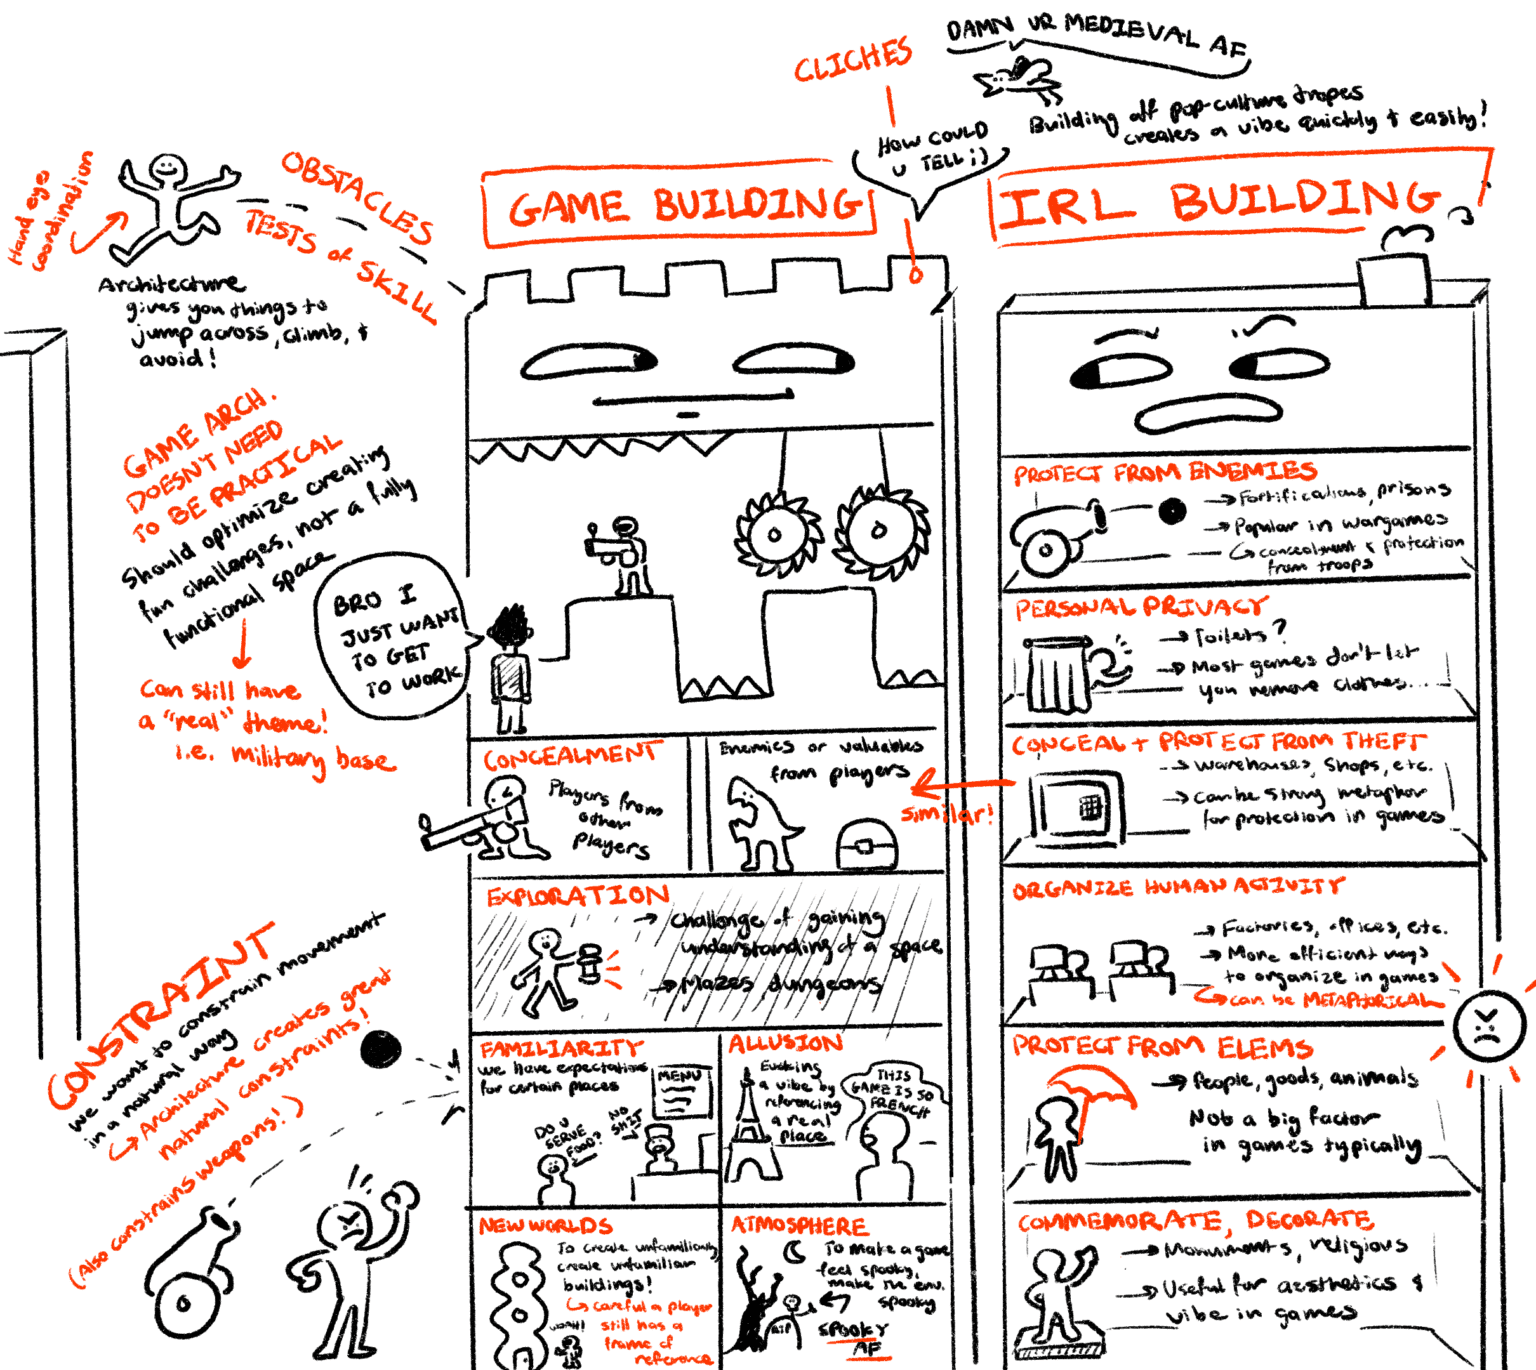 CLICHES
DAMN UR MEDIEVAL AF
Building off pop-culture tropes
creates a vibe quickly & easily!
HOW COULD
U TELL ;)
Hand eye
coordination
OBSTACLES
TESTS of SKILL
Architecture
gives you things to
jump across, climb, &
avoid!
GAME ARCH.
DOESN'T NEED
TO BE PRACTICAL
Should optimize creating
fun challenges, not a fully
functional space
Can still have
a "real" theme!
i.e. military base
CONSTRAINT
We want to constrain movement
in a natural way
Architecture creates great
natural constraints!
(Also constrains weapons!)
GAME BUILDING
BRO I
JUST WANT
TO GET
TO WORK
CONCEALMENT
Players from
other
players
Enemies or valuables
from players
similar!
EXPLORATION
→ Challenge of gaining
understanding of a space
→ Mazes dungeons
FAMILIARITY
we have expectations
for certain places
MENU
DO U
SERVE
FOOD?
NO
SHIT
ALLUSION
Evoking
a vibe by
referencing
a real
place
THIS
GAME IS SO
FRENCH
NEW WORLDS
To create unfamiliarity,
create unfamiliar
buildings!
careful a player
still has a
frame of
reference
WOAH!
ATMOSPHERE
To make a game
feel spooky,
make the env.
spooky
SPOOKY
AF
RIP
IRL BUILDING
PROTECT FROM ENEMIES
→ Fortifications, prisons
→ Popular in wargames
concealment & protection
from troops
PERSONAL PRIVACY
→ Toilets?
→ Most games don't let
you remove clothes...
CONCEAL + PROTECT FROM THEFT
→ Warehouses, Shops, etc.
→ Can be strong metaphor
for protection in games
ORGANIZE HUMAN ACTIVITY
→ Factories, offices, etc.
→ More efficient ways
to organize in games
can be METAPHORICAL
PROTECT FROM ELEMS
→ People, goods, animals
Not a big factor
in games typically
COMMEMORATE, DECORATE
→ Monuments, religious
→ Useful for aesthetics &
vibe in games